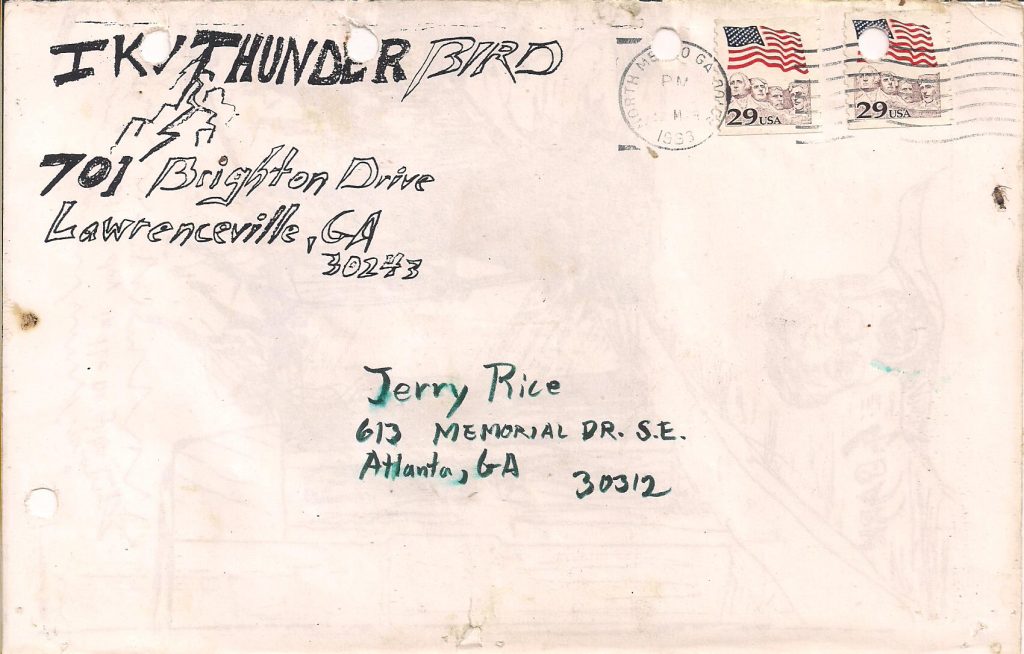 IKY THUNDER BIRD
701 Brighton Drive
Lawrenceville, GA
30243
NORTH METRO GA
PM
1993
29 USA
29 USA
Jerry Rice
613 MEMORIAL DR. S.E.
Atlanta, GA 30312